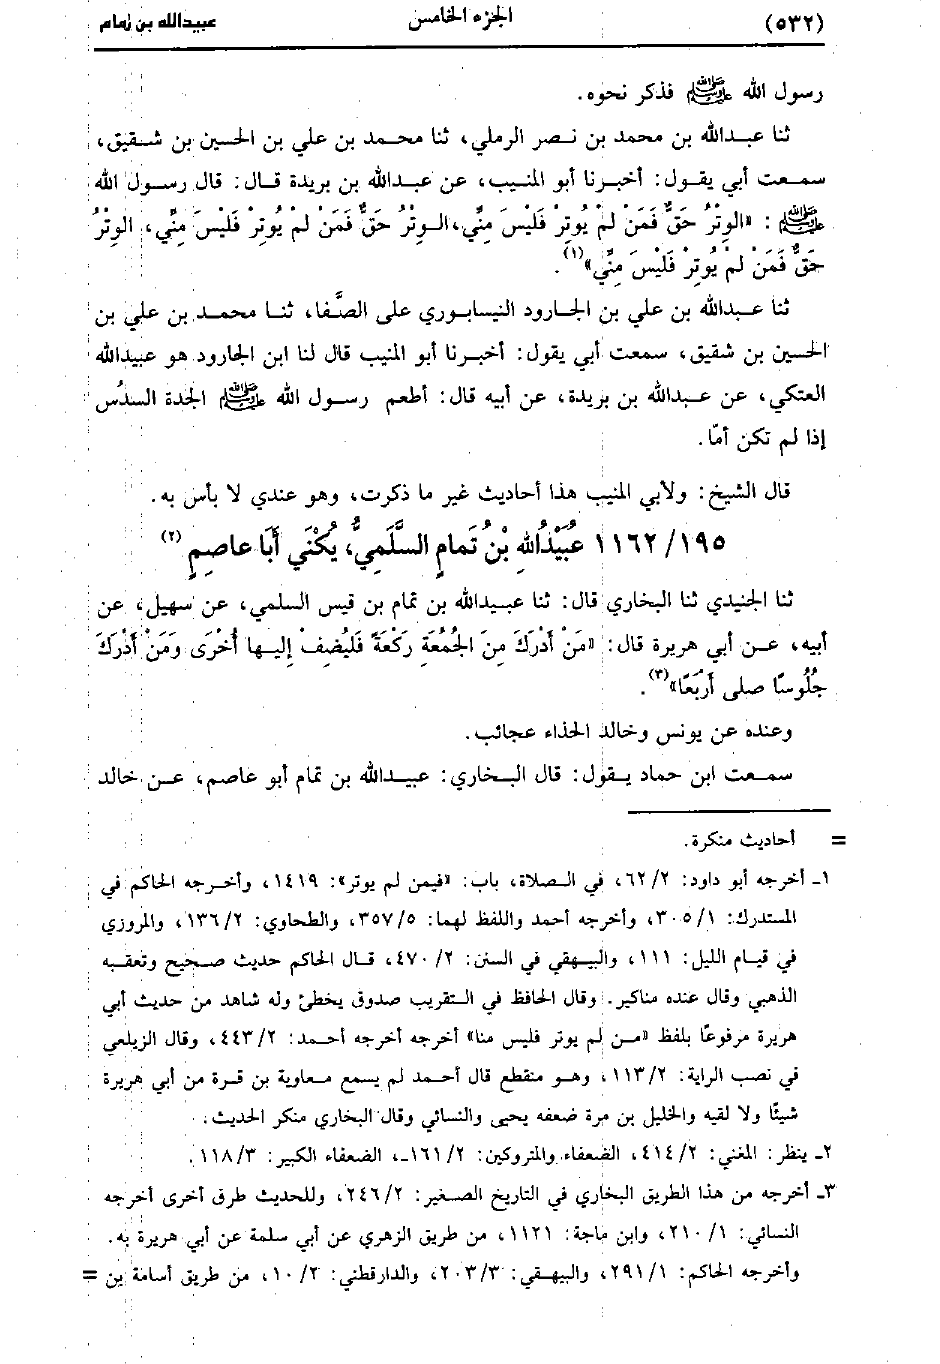 (٥٣٢) الجزء الخامس عبيدالله بن تمام
رسول الله ﷺ فذكر نحوه.
ثنا عبدالله بن محمد بن نصر الرملي، ثنا محمد بن علي بن الحسين بن شقيق،
سمعت أبي يقول: أخبرنا أبو المنيب، عن عبدالله بن بريدة قال: قال رسول الله
ﷺ: «الوِتْرُ حَقٌّ فَمَنْ لَمْ يُوتِرْ فَلَيْسَ مِنِّي، الوِتْرُ حَقٌّ فَمَنْ لَمْ يُوتِرْ فَلَيْسَ مِنِّي، الوِتْرُ
حَقٌّ فَمَنْ لَمْ يُوتِرْ فَلَيْسَ مِنِّي»(١).
ثنا عبدالله بن علي بن الجارود النيسابوري على الصَّفا، ثنا محمد بن علي بن
الحسين بن شقيق، سمعت أبي يقول: أخبرنا أبو المنيب قال لنا ابن الجارود هو عبيدالله
العتكي، عن عبدالله بن بريدة، عن أبيه قال: أطعم رسول الله ﷺ الجدة السدُس
إذا لم تكن أمّا.
قال الشيخ: ولأبي المنيب هذا أحاديث غير ما ذكرت، وهو عندي لا بأس به.
١١٦٢/١٩٥ عُبَيْدُاللهِ بْنُ تَمامٍ السَّلَمِيُّ، يُكْنَى أَبَا عاصِمٍ(٢)
ثنا الجنيدي ثنا البخاري قال: ثنا عبيدالله بن تمام بن قيس السلمي، عن سهيل، عن
أبيه، عن أبي هريرة قال: «مَنْ أَدْرَكَ مِنَ الجُمُعَةِ رَكْعَةً فَلْيُضِفْ إِليها أُخْرَى وَمَنْ أَدْرَكَ
جُلُوسًا صلى أَرْبَعًا»(٣).
وعنده عن يونس وخالد الحذاء عجائب.
سمعت ابن حماد يقول: قال البخاري: عبيدالله بن تمام أبو عاصم، عن خالد
= أحاديث منكرة.
١ـ أخرجه أبو داود: ٦٢/٢، في الصلاة، باب: «فيمن لم يوتر»: ١٤١٩، وأخرجه الحاكم في
المستدرك: ٣٠٥/١، وأخرجه أحمد واللفظ لهما: ٣٥٧/٥، والطحاوي: ١٣٦/٢، والمروزي
في قيام الليل: ١١١، والبيهقي في السنن: ٤٧٠/٢، قال الحاكم حديث صحيح وتعقبه
الذهبي وقال عنده مناكير. وقال الحافظ في التقريب صدوق يخطئ وله شاهد من حديث أبي
هريرة مرفوعًا بلفظ «من لم يوتر فليس منا» أخرجه أخرجه أحمد: ٤٤٣/٢، وقال الزيلعي
في نصب الراية: ١١٣/٢، وهو منقطع قال أحمد لم يسمع معاوية بن قرة من أبي هريرة
شيئًا ولا لقيه والخليل بن مرة ضعفه يحيى والنسائي وقال البخاري منكر الحديث.
٢ـ ينظر: المغني: ٤١٤/٢، الضعفاء والمتروكين: ١٦١/٢ـ، الضعفاء الكبير: ١١٨/٣.
٣ـ أخرجه من هذا الطريق البخاري في التاريخ الصغير: ٢٤٦/٢، وللحديث طرق أخرى أخرجه
النسائي: ٢١٠/١، وابن ماجة: ١١٢١، من طريق الزهري عن أبي سلمة عن أبي هريرة به.
وأخرجه الحاكم: ٢٩١/١، والبيهقي: ٢٠٣/٣، والدارقطني: ١٠/٢، من طريق أسامة بن =